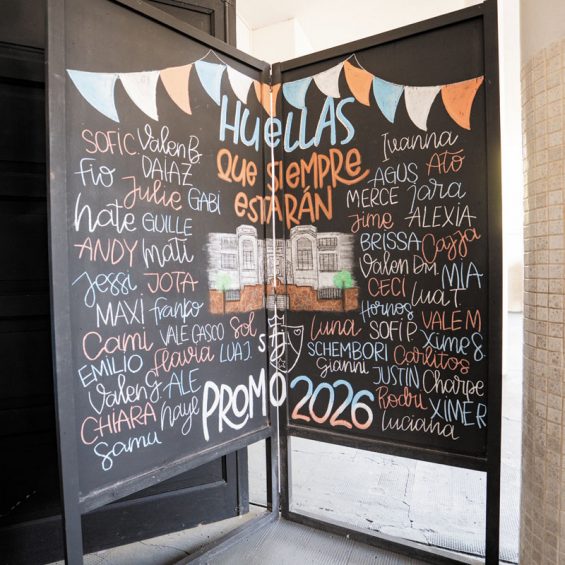 HUELLAS
QUE SIEMPRE
ESTARÁN
SOFIC. Valen B
Fio DAIAZ
Julie GABI
Nate GUILLE
ANDY Mati
Jessi JOTA
MAXI Franko
Cami VALE GASCO Sol
EMILIO Flavia LUA J.
Valen G. ALE
CHIARA Naye
Samu
Ivanna
AGUS Ato
MERCE Lara
Jime ALEXIA
BRISSA Cazza
Valen Dm MIA
CECI Lua T
Hornos VALEM
Luna SOFI P. Ximes
SCHEMBORI Carlitos
Gianni JUSTIN Charse
Rodri XIMER
Luciana
PROMO 2026